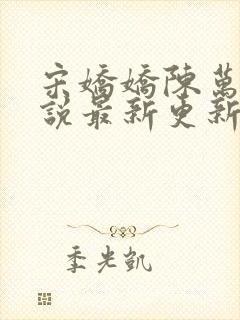 宋嬌嬌陳萬
說最新更新
季光凱